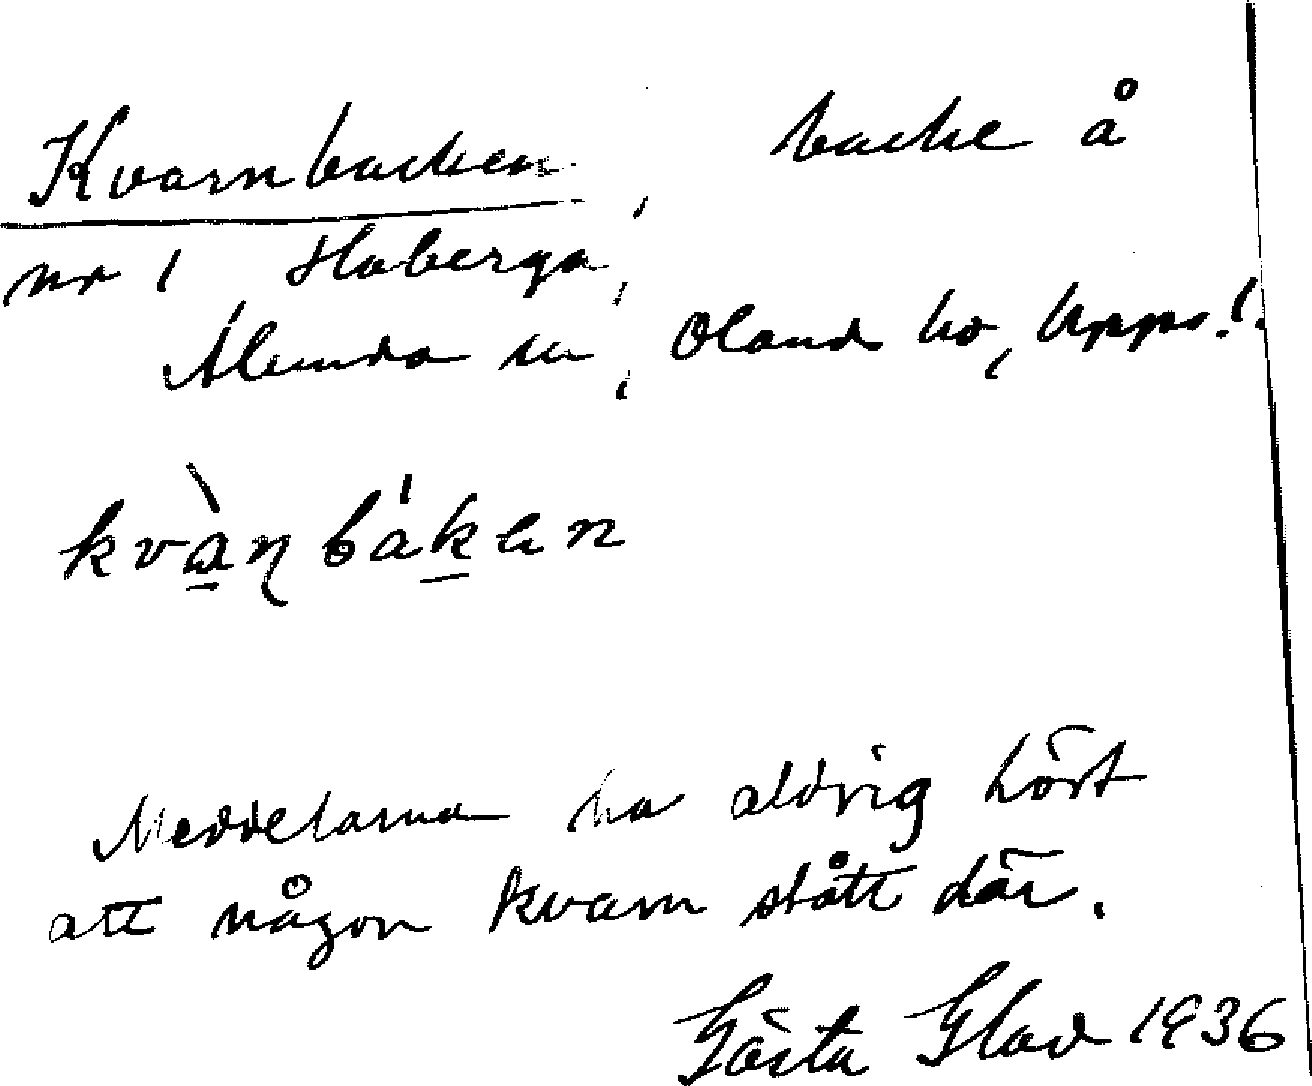 Kvarnbacken, backe å
nr 1 Haberga,
Alunda sn, Oland hd, Upps.l.
kvàṇbáken
Meddelarna ha aldrig hört
att någon kvarn stått där.
Gösta Glad 1936